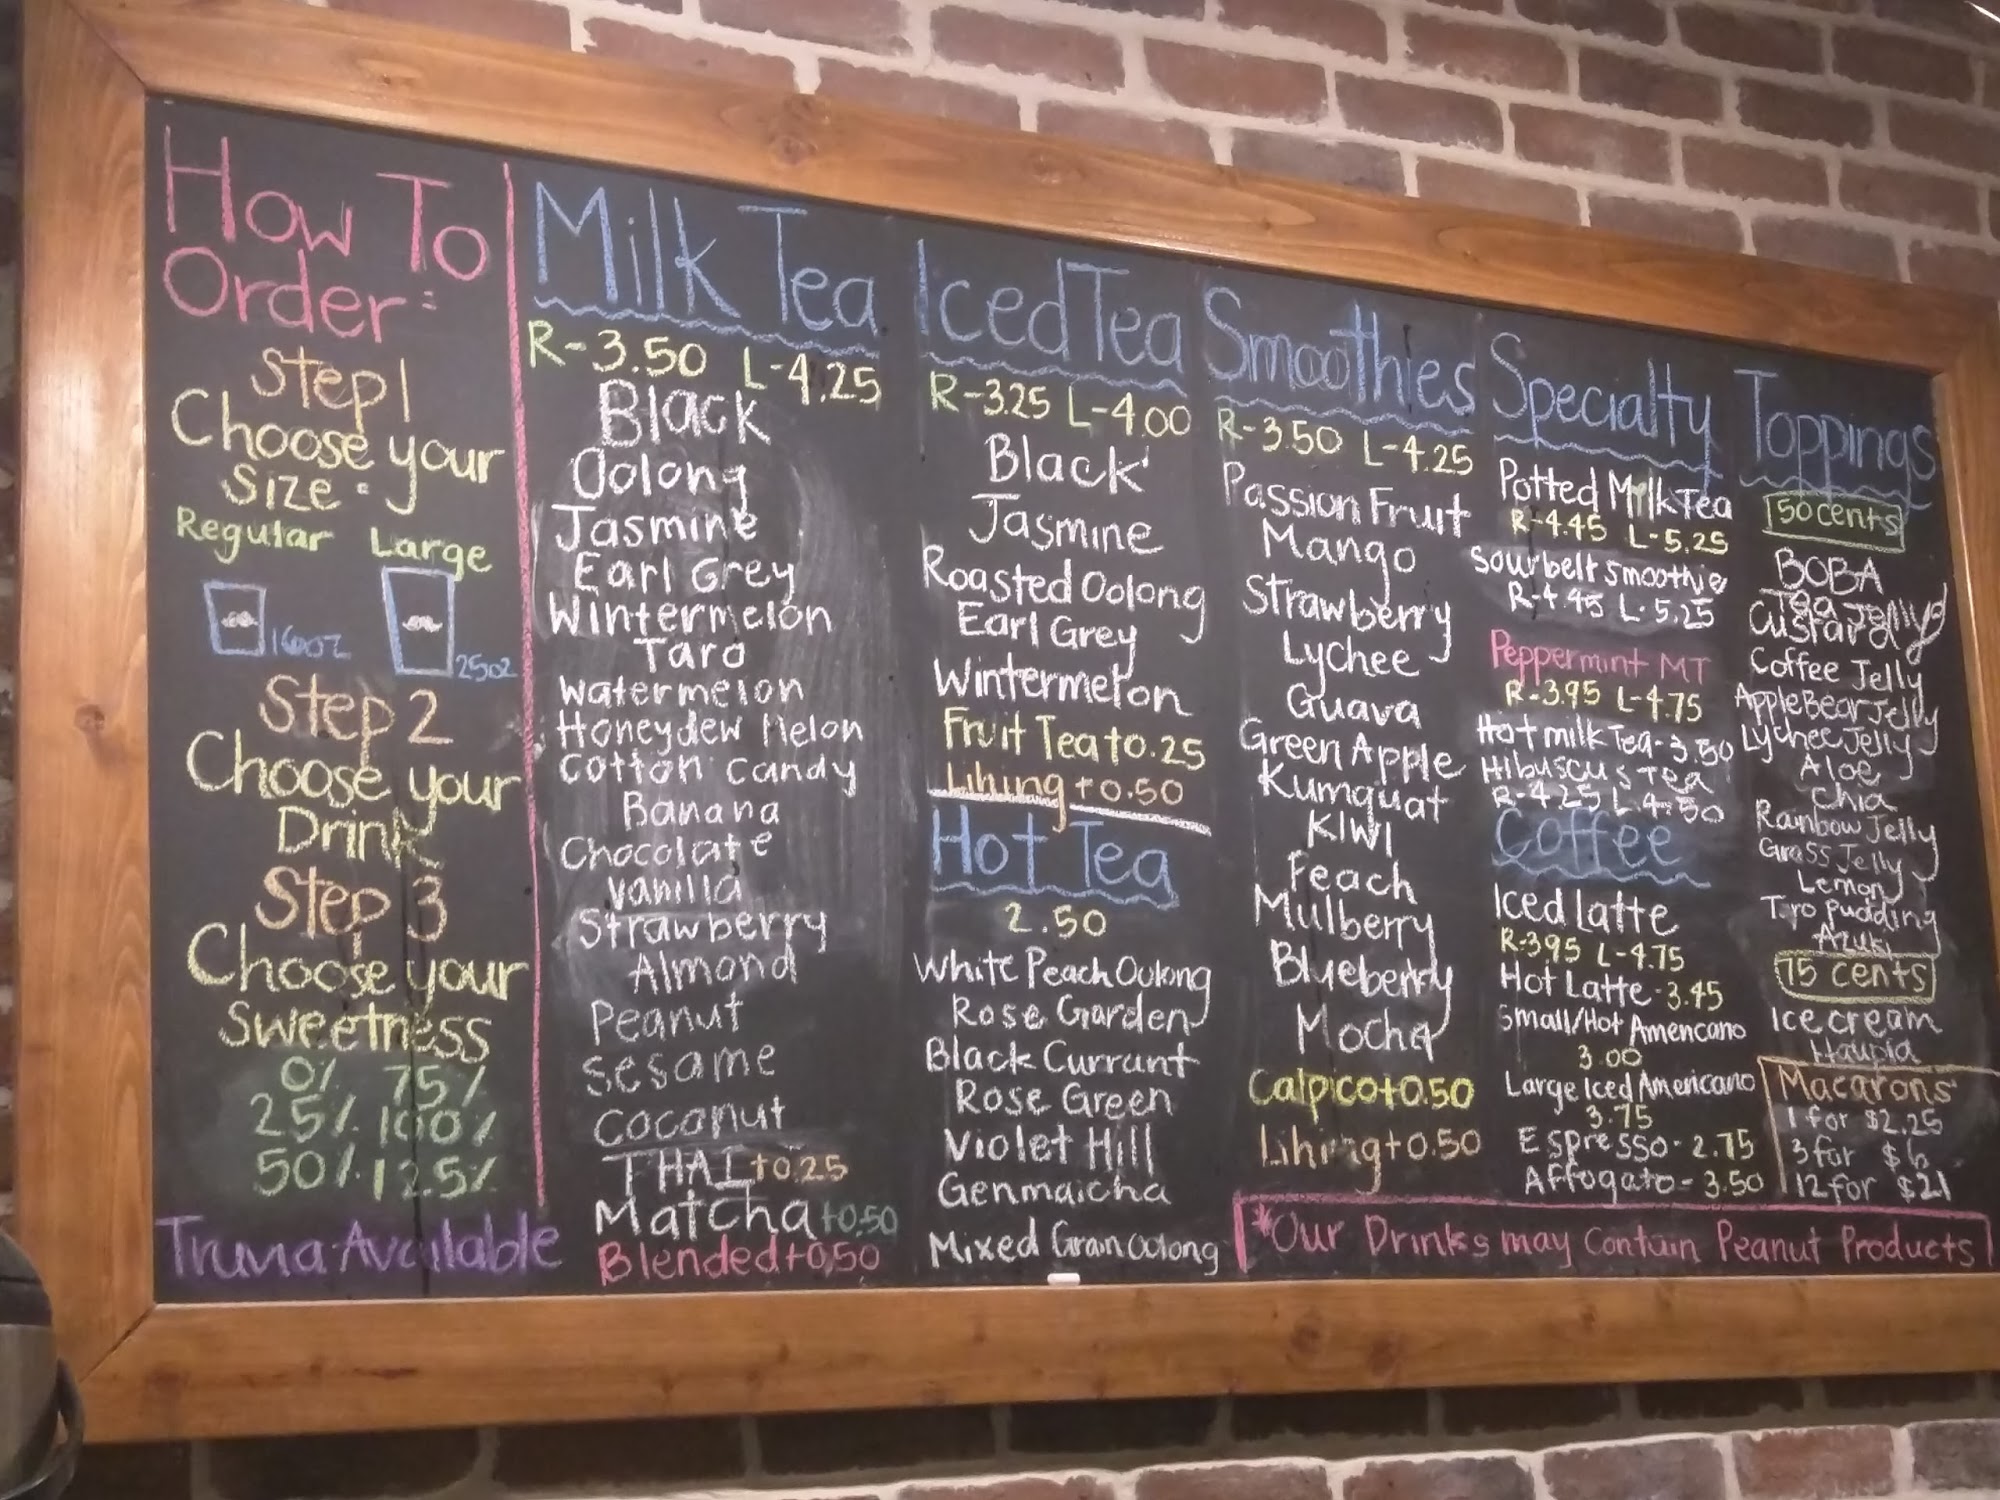 How To
Order:
Step 1
Choose your
Size:
Regular Large
16oz
25oz
Step 2
Choose your
Drink
Step 3
Choose your
Sweetness
0% 75%
25% 100%
50% 125%
Truvia Available
Milk Tea
R-3.50 L-4.25
Black
Oolong
Jasmine
Earl Grey
Wintermelon
Taro
Watermelon
Honeydew Melon
Cotton Candy
Banana
Chocolate
Vanilla
Strawberry
Almond
Peanut
Sesame
Coconut
THAI +0.25
Matcha +0.50
Blended +0.50
Iced Tea
R-3.25 L-4.00
Black
Jasmine
Roasted Oolong
Earl Grey
Wintermelon
Fruit Tea +0.25
Lihing +0.50
Hot Tea
2.50
White Peach Oolong
Rose Garden
Black Currant
Rose Green
Violet Hill
Genmaicha
Mixed Grain Oolong
Smoothies
R-3.50 L-4.25
Passion Fruit
Mango
Strawberry
Lychee
Guava
Green Apple
Kumquat
Kiwi
Peach
Mulberry
Blueberry
Mocha
Calpico +0.50
Lihing +0.50
Specialty
Potted Milk Tea
R-4.45 L-5.25
Sourbelt Smoothie
R-4.95 L-5.25
Peppermint MT
R-3.95 L-4.75
Hot milk Tea-3.50
Hibuscus Tea
R-4.25 L-4.50
Coffee
Iced Latte
R-3.95 L-4.75
Hot Latte-3.45
Small/Hot Americano
3.00
Large Iced Americano
3.75
Espresso-2.75
Affogato-3.50
Toppings
50 cents
BOBA
Tea Jelly
Custard
Coffee Jelly
Apple Bear Jelly
Lychee Jelly
Aloe
Chia
Rainbow Jelly
Grass Jelly
Lemon
Taro Pudding
Azuki
75 cents
Ice cream
Haupia
Macarons
1 for $2.25
3 for $6
12 for $21
*Our Drinks may Contain Peanut Products